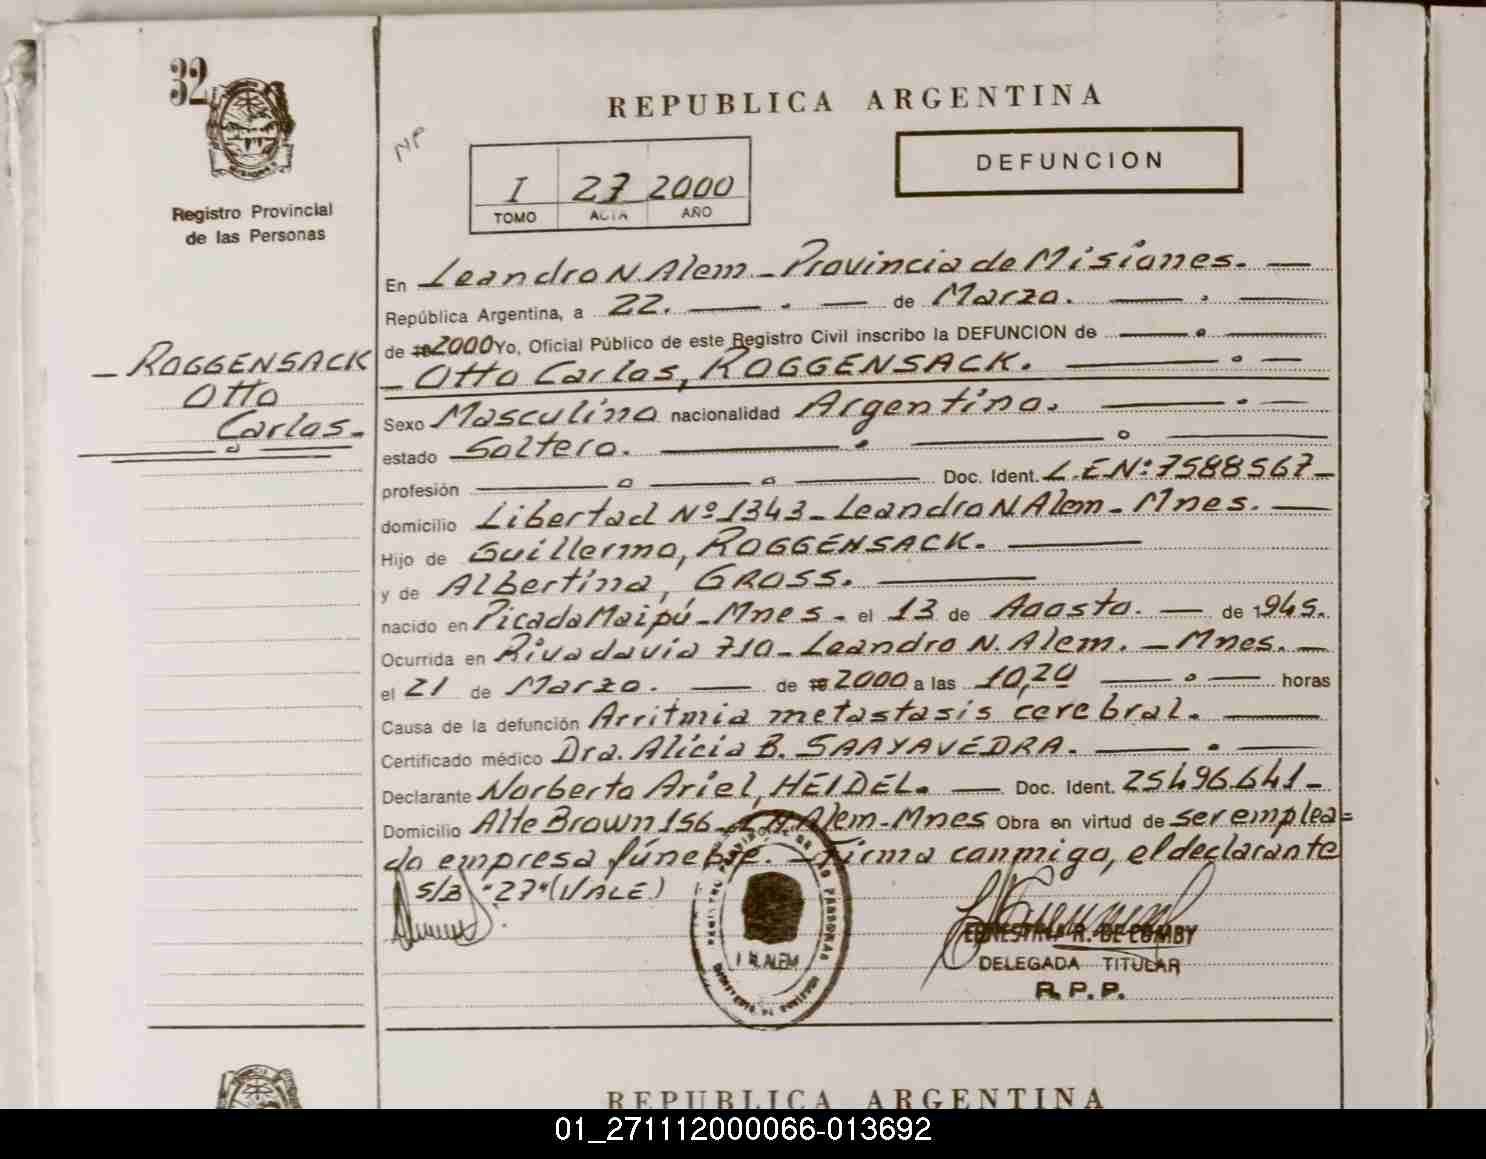 32
REPUBLICA ARGENTINA
NP
DEFUNCION
I 27 2000
TOMO ACTA AÑO
Registro Provincial
de las Personas
En Leandro N. Alem - Provincia de Misiones. —
República Argentina, a 22. — . — de Marzo. — . —
de 2000 Yo, Oficial Público de este Registro Civil inscribo la DEFUNCION de — . —
- Otto Carlos, ROGGENSACK. — . —
- ROGGENSACK
Otto
Carlos.-
Sexo Masculino nacionalidad Argentino. — . —
estado Soltero. — . — o —
profesión — o — o — Doc. Ident. L.E.Nº: 7588567-
domicilio Libertad Nº 1343 - Leandro N Alem - Mnes. —
Hijo de Guillermo, ROGGENSACK. —
y de Albertina, GROSS. —
nacido en Picada Maipú - Mnes - el 13 de Agosto. — de 1945.
Ocurrida en Rivadavia 710 - Leandro N. Alem. - Mnes. —
el 21 de Marzo. — de 2000 a las 10,20 — o — horas
Causa de la defunción Arritmia metastasis cerebral. —
Certificado médico Dra. Alicia B. SAAYAVEDRA. — . —
Declarante Norberto Ariel, HEIDEL. — Doc. Ident. 25.496.641-
Domicilio Alte Brown 156 - L N Alem - Mnes Obra en virtud de ser emplea=
do empresa fúnebre. - Firma conmigo, el declarante
S/B "27" (VALE)
L N. ALEM
ERNESTINA R. DE COMBY
DELEGADA TITULAR
R.P.P.
REPUBLICA ARGENTINA
01_271112000066-013692